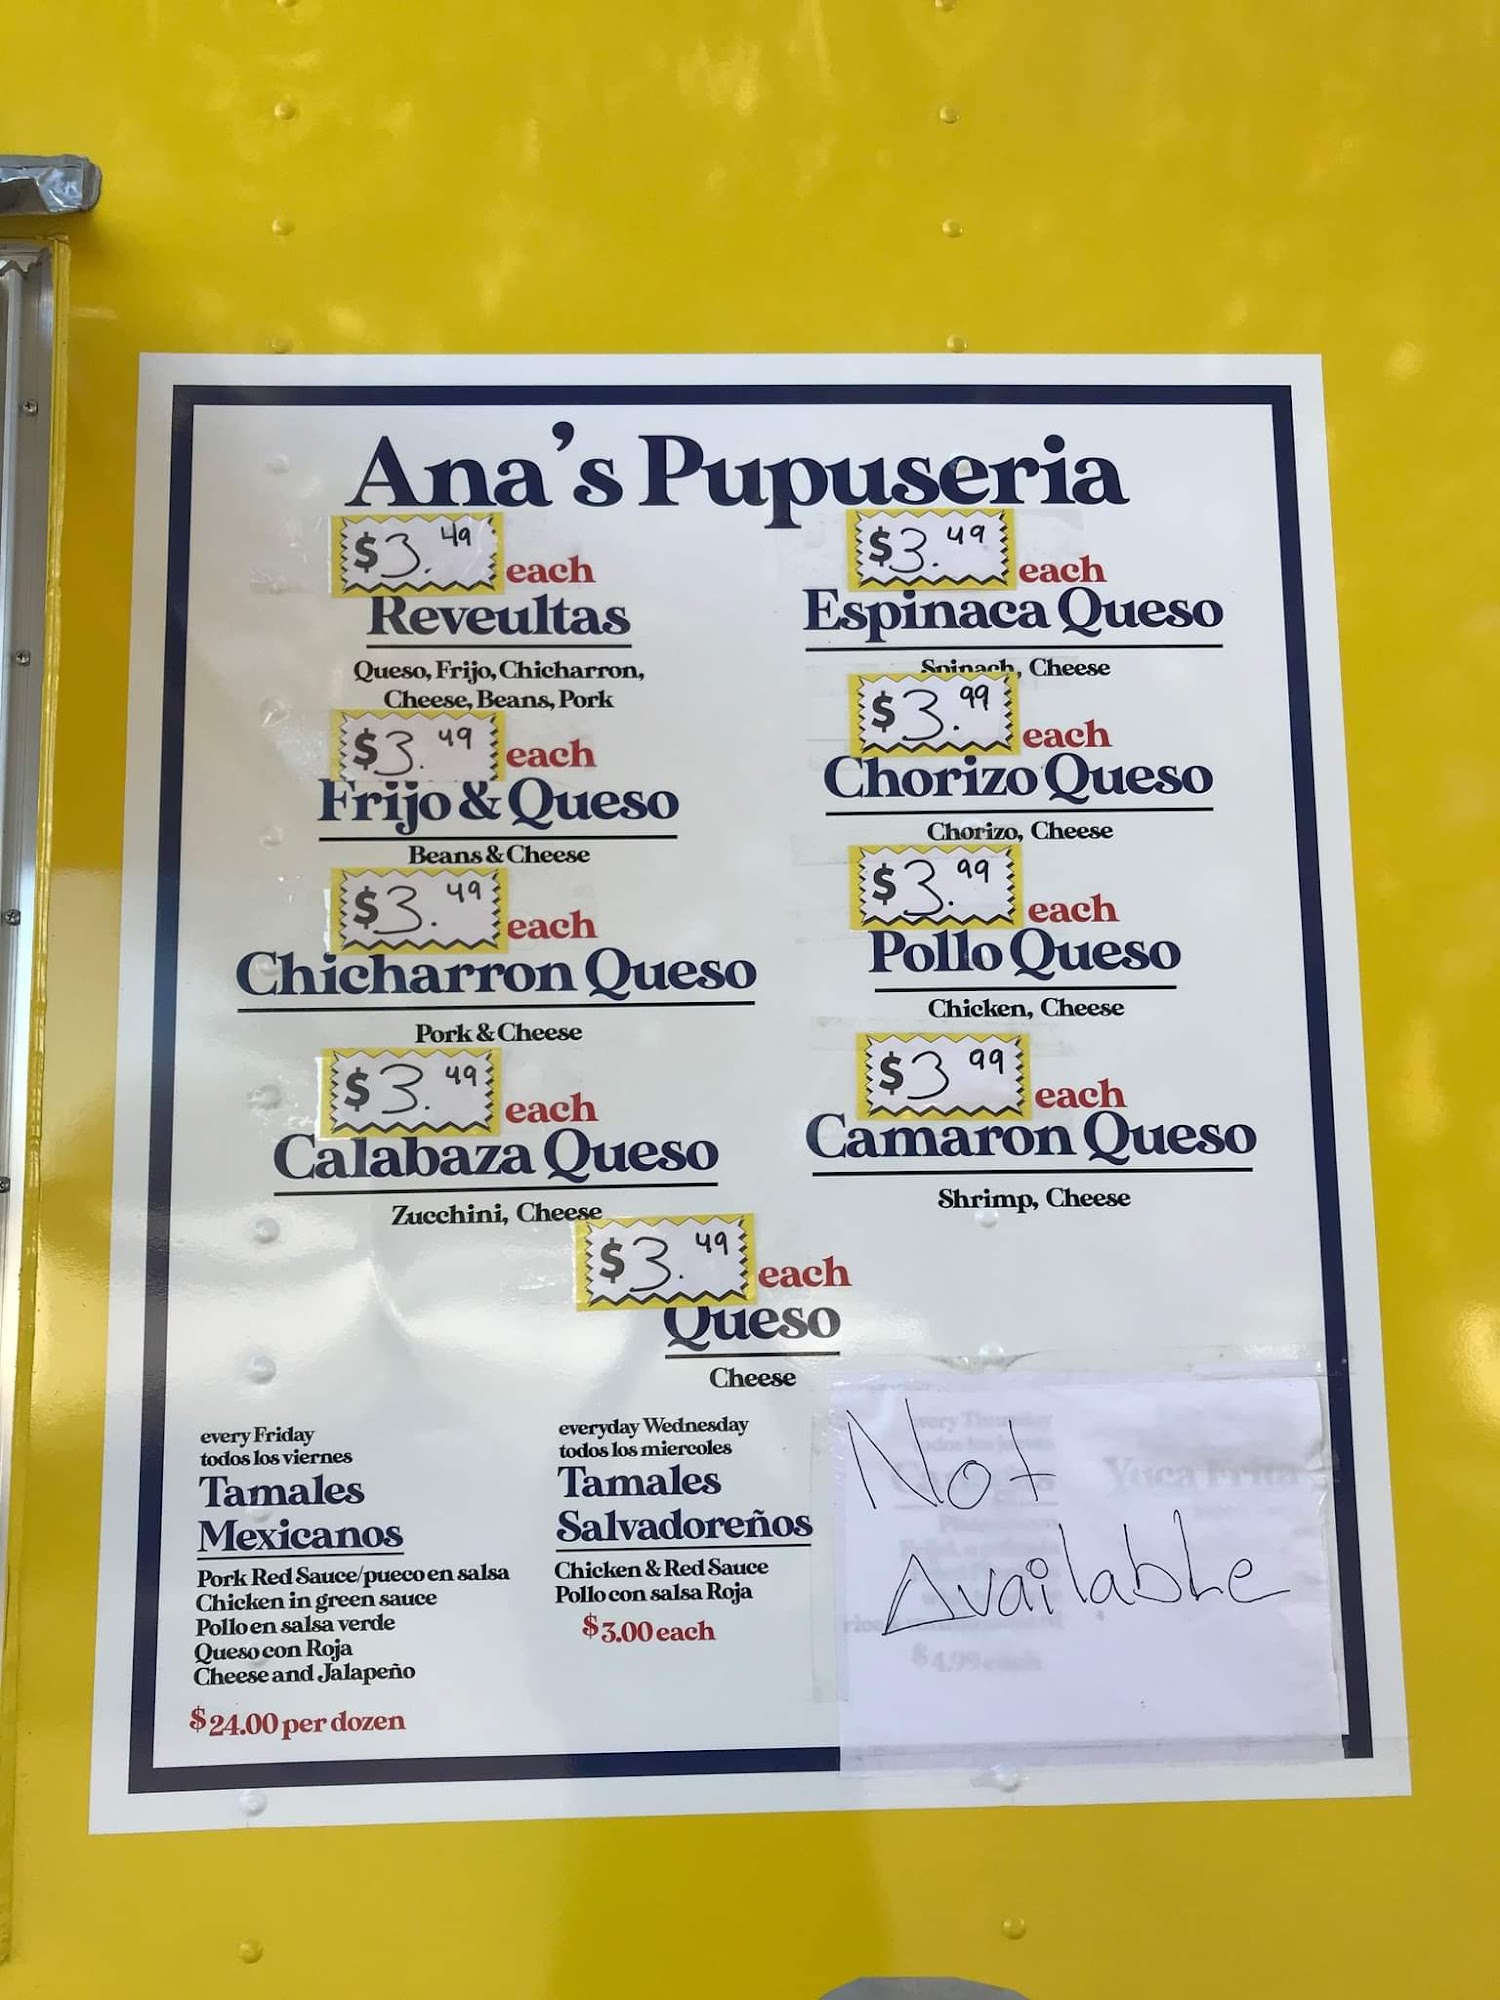 Ana's Pupuseria
$3.49 each
Reveultas
Queso, Frijo, Chicharron,
Cheese, Beans, Pork
$3.49 each
Frijo & Queso
Beans & Cheese
$3.49 each
Chicharron Queso
Pork & Cheese
$3.49 each
Calabaza Queso
Zucchini, Cheese
$3.49 each
Espinaca Queso
Spinach, Cheese
$3.99 each
Chorizo Queso
Chorizo, Cheese
$3.99 each
Pollo Queso
Chicken, Cheese
$3 99 each
Camaron Queso
Shrimp, Cheese
$3.49 each
Queso
Cheese
every Friday
todos los viernes
Tamales
Mexicanos
Pork Red Sauce/pueco en salsa
Chicken in green sauce
Pollo en salsa verde
Queso con Roja
Cheese and Jalapeño
$24.00 per dozen
everyday Wednesday
todos los miercoles
Tamales
Salvadoreños
Chicken & Red Sauce
Pollo con salsa Roja
$3.00 each
Not
Available
every Thursday
todos los jueves
Yuca Frita
$4.99 each